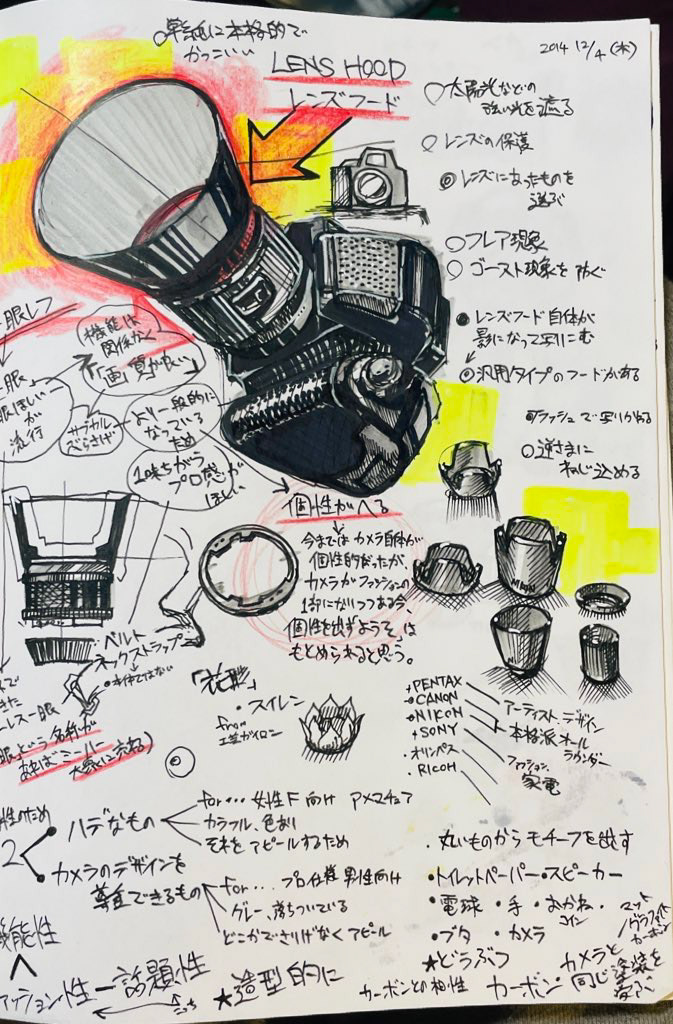 単純に本格的で
かっこいい
2014 12/4 (木)
LENS HOOD
レンズフード
太陽光などの
強い光を遮る
レンズの保護
レンズにあったものを
選ぶ
フレア現象
ゴースト現象を防ぐ
レンズフード自体が
影になって写りこむ
汎用タイプのフードがある
フラッシュで写りがわる
逆さまに
ねじ込める
一眼レフ
機能は
関係なく
「画質が良い」
流行
より一般的に
なっている
ため
1味ちがう
プロ感が
ほしい
個性がへる
今まではカメラ自体が
個性的だったが、
カメラがファッションの
1部になりつつある今、
個性を出すようそは
もとめられると思う。
NIKON
ベルト
ネックストラップ
・本体ではない
レス一眼
眼という名称が
あればミーハー
大衆に六ねる)
「花形」
・スイレン
from
PENTAX
CANON
NIKON
SONY
オリンパス
RICOH
アーティスト、デザイン
本格派オール
ラウンダー
ファッション、
家電
性のため
2
ハデなもの
for… 女性F向け アマチュア
カラフル、色あり
それをアピールするため
カメラのデザインを
尊重できるもの
for… プロ仕様 男性向け
グレー、落ちついている
どこかでさりげなくアピール
・丸いものからモチーフを出す
・トイレットペーパー・スピーカー
・電球・手・おかね・
コイン
・ブタ・カメラ
★どうぶつ
マット
/グラファイト
カーボン
機能性
アクション性ー話題性
★造型的に
カーボンとの相性
カーボン
カメラと
同じ塗装を